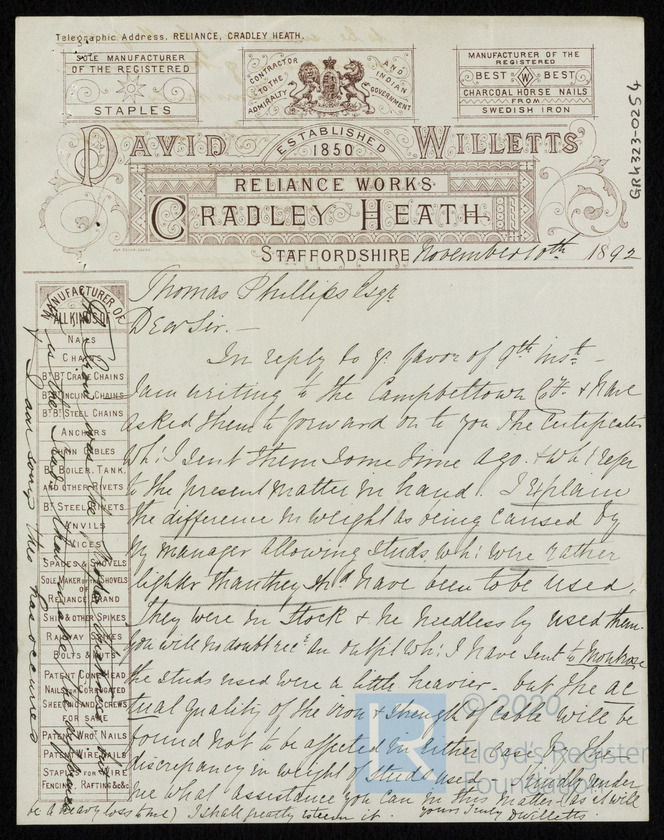 Telegraphic Address. RELIANCE, CRADLEY HEATH.
SOLE MANUFACTURER
OF THE REGISTERED
STAPLES
CONTRACTOR
TO THE
ADMIRALTY
AND
INDIAN
GOVERNMENT
MANUFACTURER OF THE
REGISTERED
BEST W BEST
CHARCOAL HORSE NAILS
FROM
SWEDISH IRON
GR4323-0254
DAVID WILLETTS
ESTABLISHED
1850
RELIANCE WORKS
CRADLEY HEATH
STAFFORDSHIRE November 10th 1892
Thomas Phillips Esqr
Dear Sir.—
In reply to yr favor of 9th inst -
I am writing to the Campbeltown Co. & have
asked them to forward on to you the Certificates
wh: I sent them some time ago. & wh: refer
to the present matter in hand. I explain
the difference in weight as being caused by
my manager allowing studs wh: were rather
lighter than they shd have been to be used.
They were in Stock & he needlessly used them.
You will no doubt rect an outfit wh: I have sent to Montrose
the studs used were a little heavier - but the ac
tual quality of the iron & strength of cable will be
found not to be affected in either case by the
discrepancy in weight of studs used - Kindly render
me what assistance you can in this matter (as it will
be a heavy loss to me) I shall greatly esteem it. yours truly D Willetts
MANUFACTURER OF
ALL KINDS OF
NAILS
CHAINS
BT BT CRANE CHAINS
BT BT INCLINE CHAINS
BT BT STEEL CHAINS
ANCHORS
CHAIN CABLES
BT BOILER, TANK,
AND OTHER RIVETS
BT STEEL RIVETS
ANVILS
VICES
SPADES & SHOVELS
SOLE MAKER OF THE SHOVELS
OF
RELIANCE BRAND
SHIP & OTHER SPIKES
RAILWAY SPIKES
BOLTS & NUTS
PATENT CONE HEAD
NAILS FOR CORRUGATED
SHEETING AND SCREWS
FOR SAME
PATENT WROT NAILS
PATENT WIRE NAILS
STAPLES FOR WIRE
FENCING, RAFTING &c &c
was the
is the
I am sorry this has occurred
© 2020
Lloyd's Register
Foundation